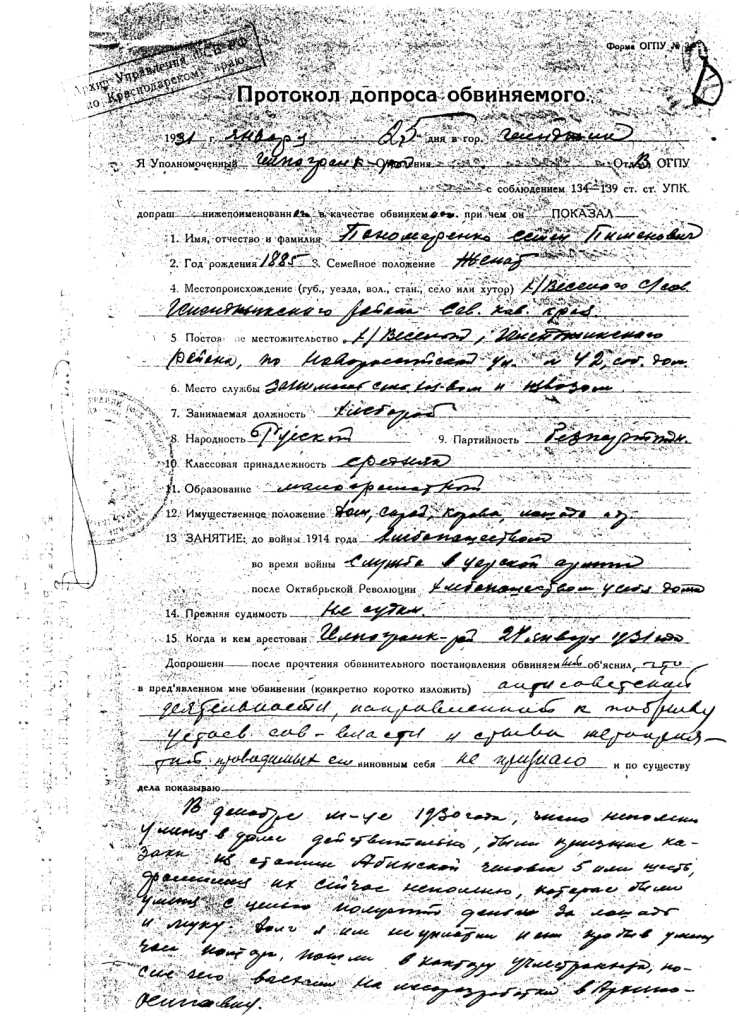 Архив Управления по Краснодарскому краю
Форма ОГПУ №
Протокол допроса обвиняемого.
1931 г. января 25 дня в гор. Геленджик
Я Уполномоченный ОГПУ
с соблюдением 134—139 ст. ст. УПК
допраш нижепоименованн в качестве обвиняем при чем он ПОКАЗАЛ
1. Имя, отчество и фамилия Пономаренко Семен Пименович
2. Год рождения 1885 3. Семейное положение Женат
4. Местопроисхождение (губ., уезда, вол., стан., село или хутор) х/Веселого
Геленджикского района Сев. Кав. края
5 Постоянное местожительство х/Веселый, Геленджикского
района, по Новороссийской ул. № 42, соб. дом.
6. Место службы и извозом.
7. Занимаемая должность хлебороб
8. Народность Русский 9. Партийность Беспартийн.
10. Классовая принадлежность середняк
11. Образование малограмотный
12. Имущественное положение Дом, сарай, корова, лошадь
13 ЗАНЯТИЕ: до войны 1914 года хлебопашеством
во время войны Служба в царской армии
после Октябрьской Революции хлебопашеством у себя дома
14. Прежняя судимость Не судим.
15. Когда и кем арестован 24 января 1931 года
Допрошенн после прочтения обвинительного постановления обвиняемый об'яснил, что
в пред'явленном мне обвинении (конкретно коротко изложить) антисоветской
деятельности, направленной к подрыву
устоев сов-власти и срыва мероприя-
тий проводимых ею виновным себя не признаю и по существу
дела показываю
В декабре м-це 1930 года, число непомню
у меня в доме действительно, были приезжие ка-
заки из станицы Абинской человек 5 или шесть,
фамилии их сейчас непомню, которые были
у меня с целью получить деньги за лошадь
и муку. Долг я им не уплатил и они пробыв у меня
пошли в контору по-
сле чего на лесоразработки в Архипо-
Осиповку.